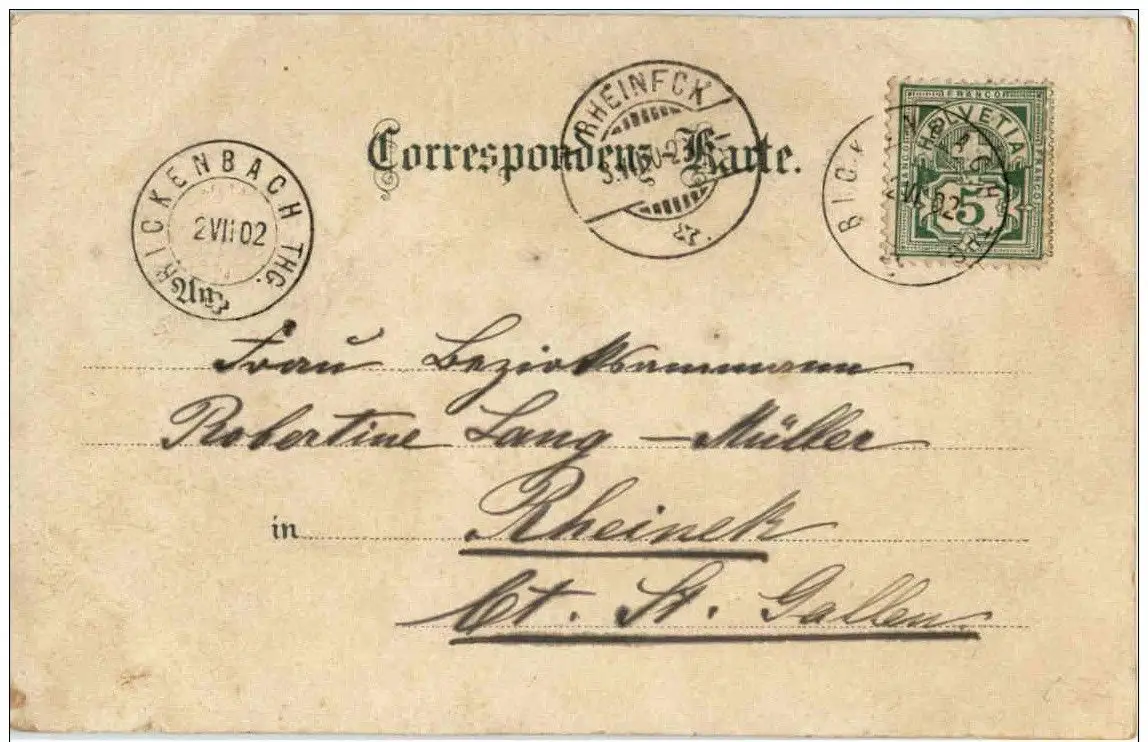 RHEINECK
Correspondenz-Karte.
RICKENBACH THG.
2 VII 02
FRANCO
HELVETIA
FRANCO
5
VII 02
Frau Bezirksammann
Robertine Lang-Müller
in Rheinek
Ct. St. Gallen.